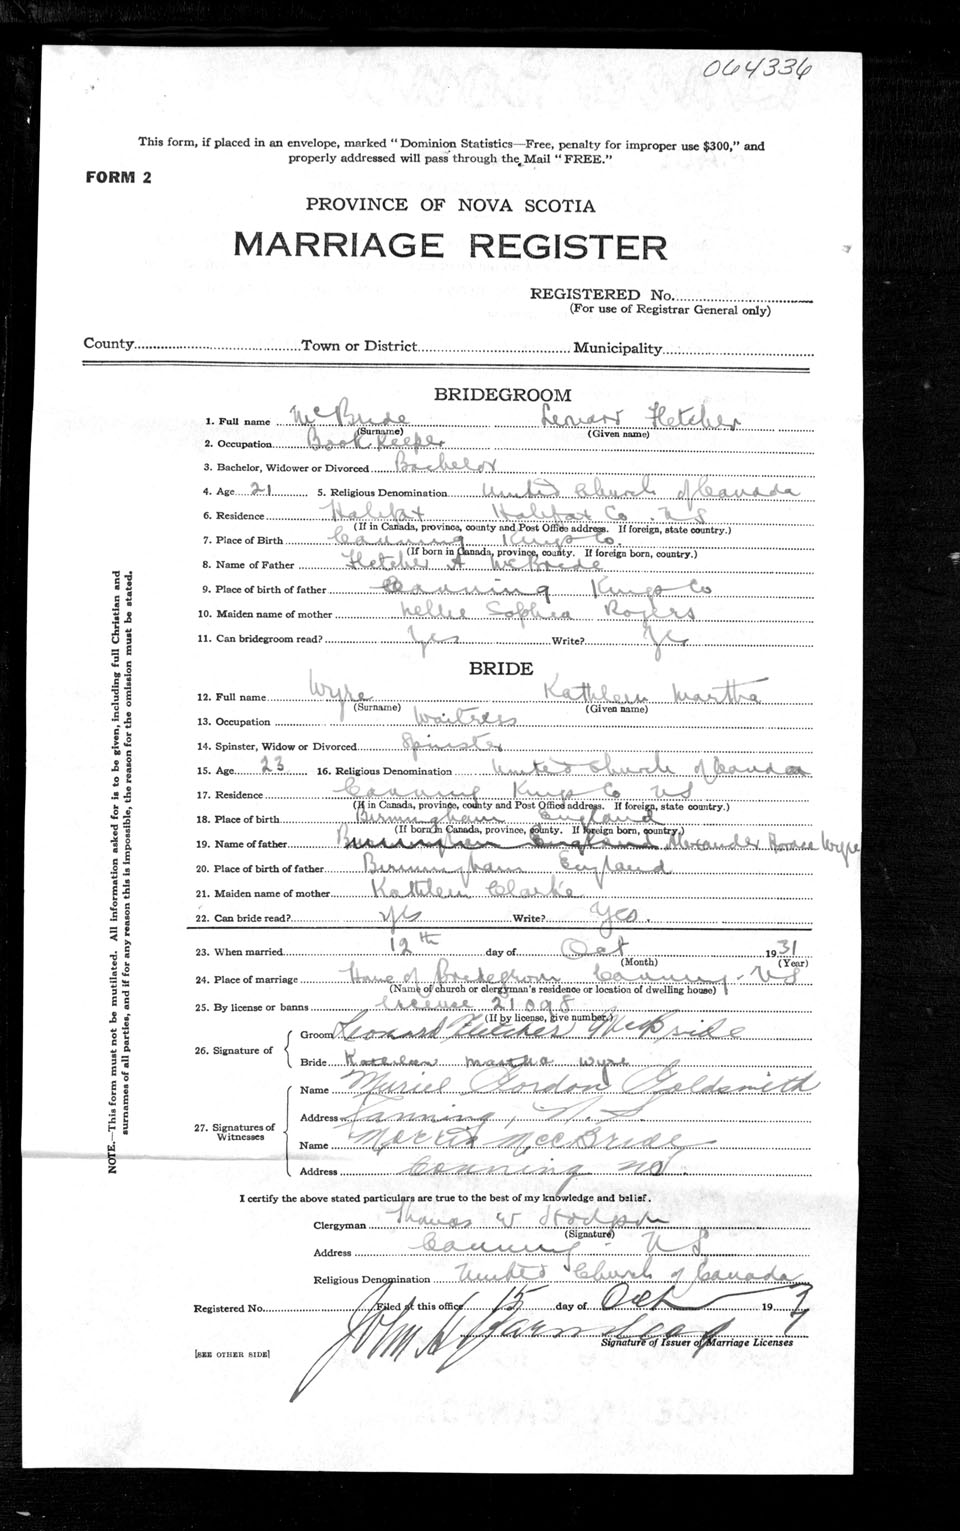 064336
This form, if placed in an envelope, marked "Dominion Statistics—Free, penalty for improper use $300," and
properly addressed will pass through the Mail "FREE."
FORM 2
PROVINCE OF NOVA SCOTIA
MARRIAGE REGISTER
REGISTERED No.
(For use of Registrar General only)
County Town or District Municipality
BRIDEGROOM
1. Full name McBride Fletcher
(Surname) (Given name)
2. Occupation Book Keeper
3. Bachelor, Widower or Divorced Bachelor
4. Age 21 5. Religious Denomination United Church of Canada
6. Residence Halifax Halifax Co. NS
(If in Canada, province, county and Post Office address. If foreign, state country.)
7. Place of Birth Canning Kings Co.
(If born in Canada, province, county. If foreign born, country.)
8. Name of Father Fletcher A McBride
9. Place of birth of father Canning Kings Co
10. Maiden name of mother Nellie Sophia Rogers
11. Can bridegroom read? Yes Write? Yes
BRIDE
12. Full name Wyre Kathleen Martha
(Surname) (Given name)
13. Occupation Waitress
14. Spinster, Widow or Divorced Spinster
15. Age 23 16. Religious Denomination United Church of Canada
17. Residence Canning Kings Co NS
(If in Canada, province, county and Post Office address. If foreign, state country.)
18. Place of birth Birmingham England
(If born in Canada, province, county. If foreign born, country.)
19. Name of father Birmingham England Alexander Horace Wyre
20. Place of birth of father Birmingham England
21. Maiden name of mother Kathleen Clarke
22. Can bride read? yes Write? Yes.
23. When married 12th day of Oct 1931
(Month) (Year)
24. Place of marriage Home of Bridegroom Canning - NS
(Name of church or clergyman's residence or location of dwelling house)
25. By license or banns License 21098
(If by license, give number.)
26. Signature of
Groom Leonard Fletcher McBride
Bride Kathleen Martha Wyre
27. Signatures of Witnesses
Name Muriel Gordon Goldsmith
Address Canning, N S
Name McBride
Address Canning NS.
I certify the above stated particulars are true to the best of my knowledge and belief.
Clergyman Thomas W Hodgson
(Signature)
Address Canning - NS
Religious Denomination United Church of Canada
Registered No. Filed at this office 15 day of Oct 193
John H
Signature of Issuer of Marriage Licenses
[SEE OTHER SIDE]
NOTE.—This form must not be mutilated. All information asked for is to be given, including full Christian and
surnames of all parties, and if for any reason this is impossible, the reason for the omission must be stated.